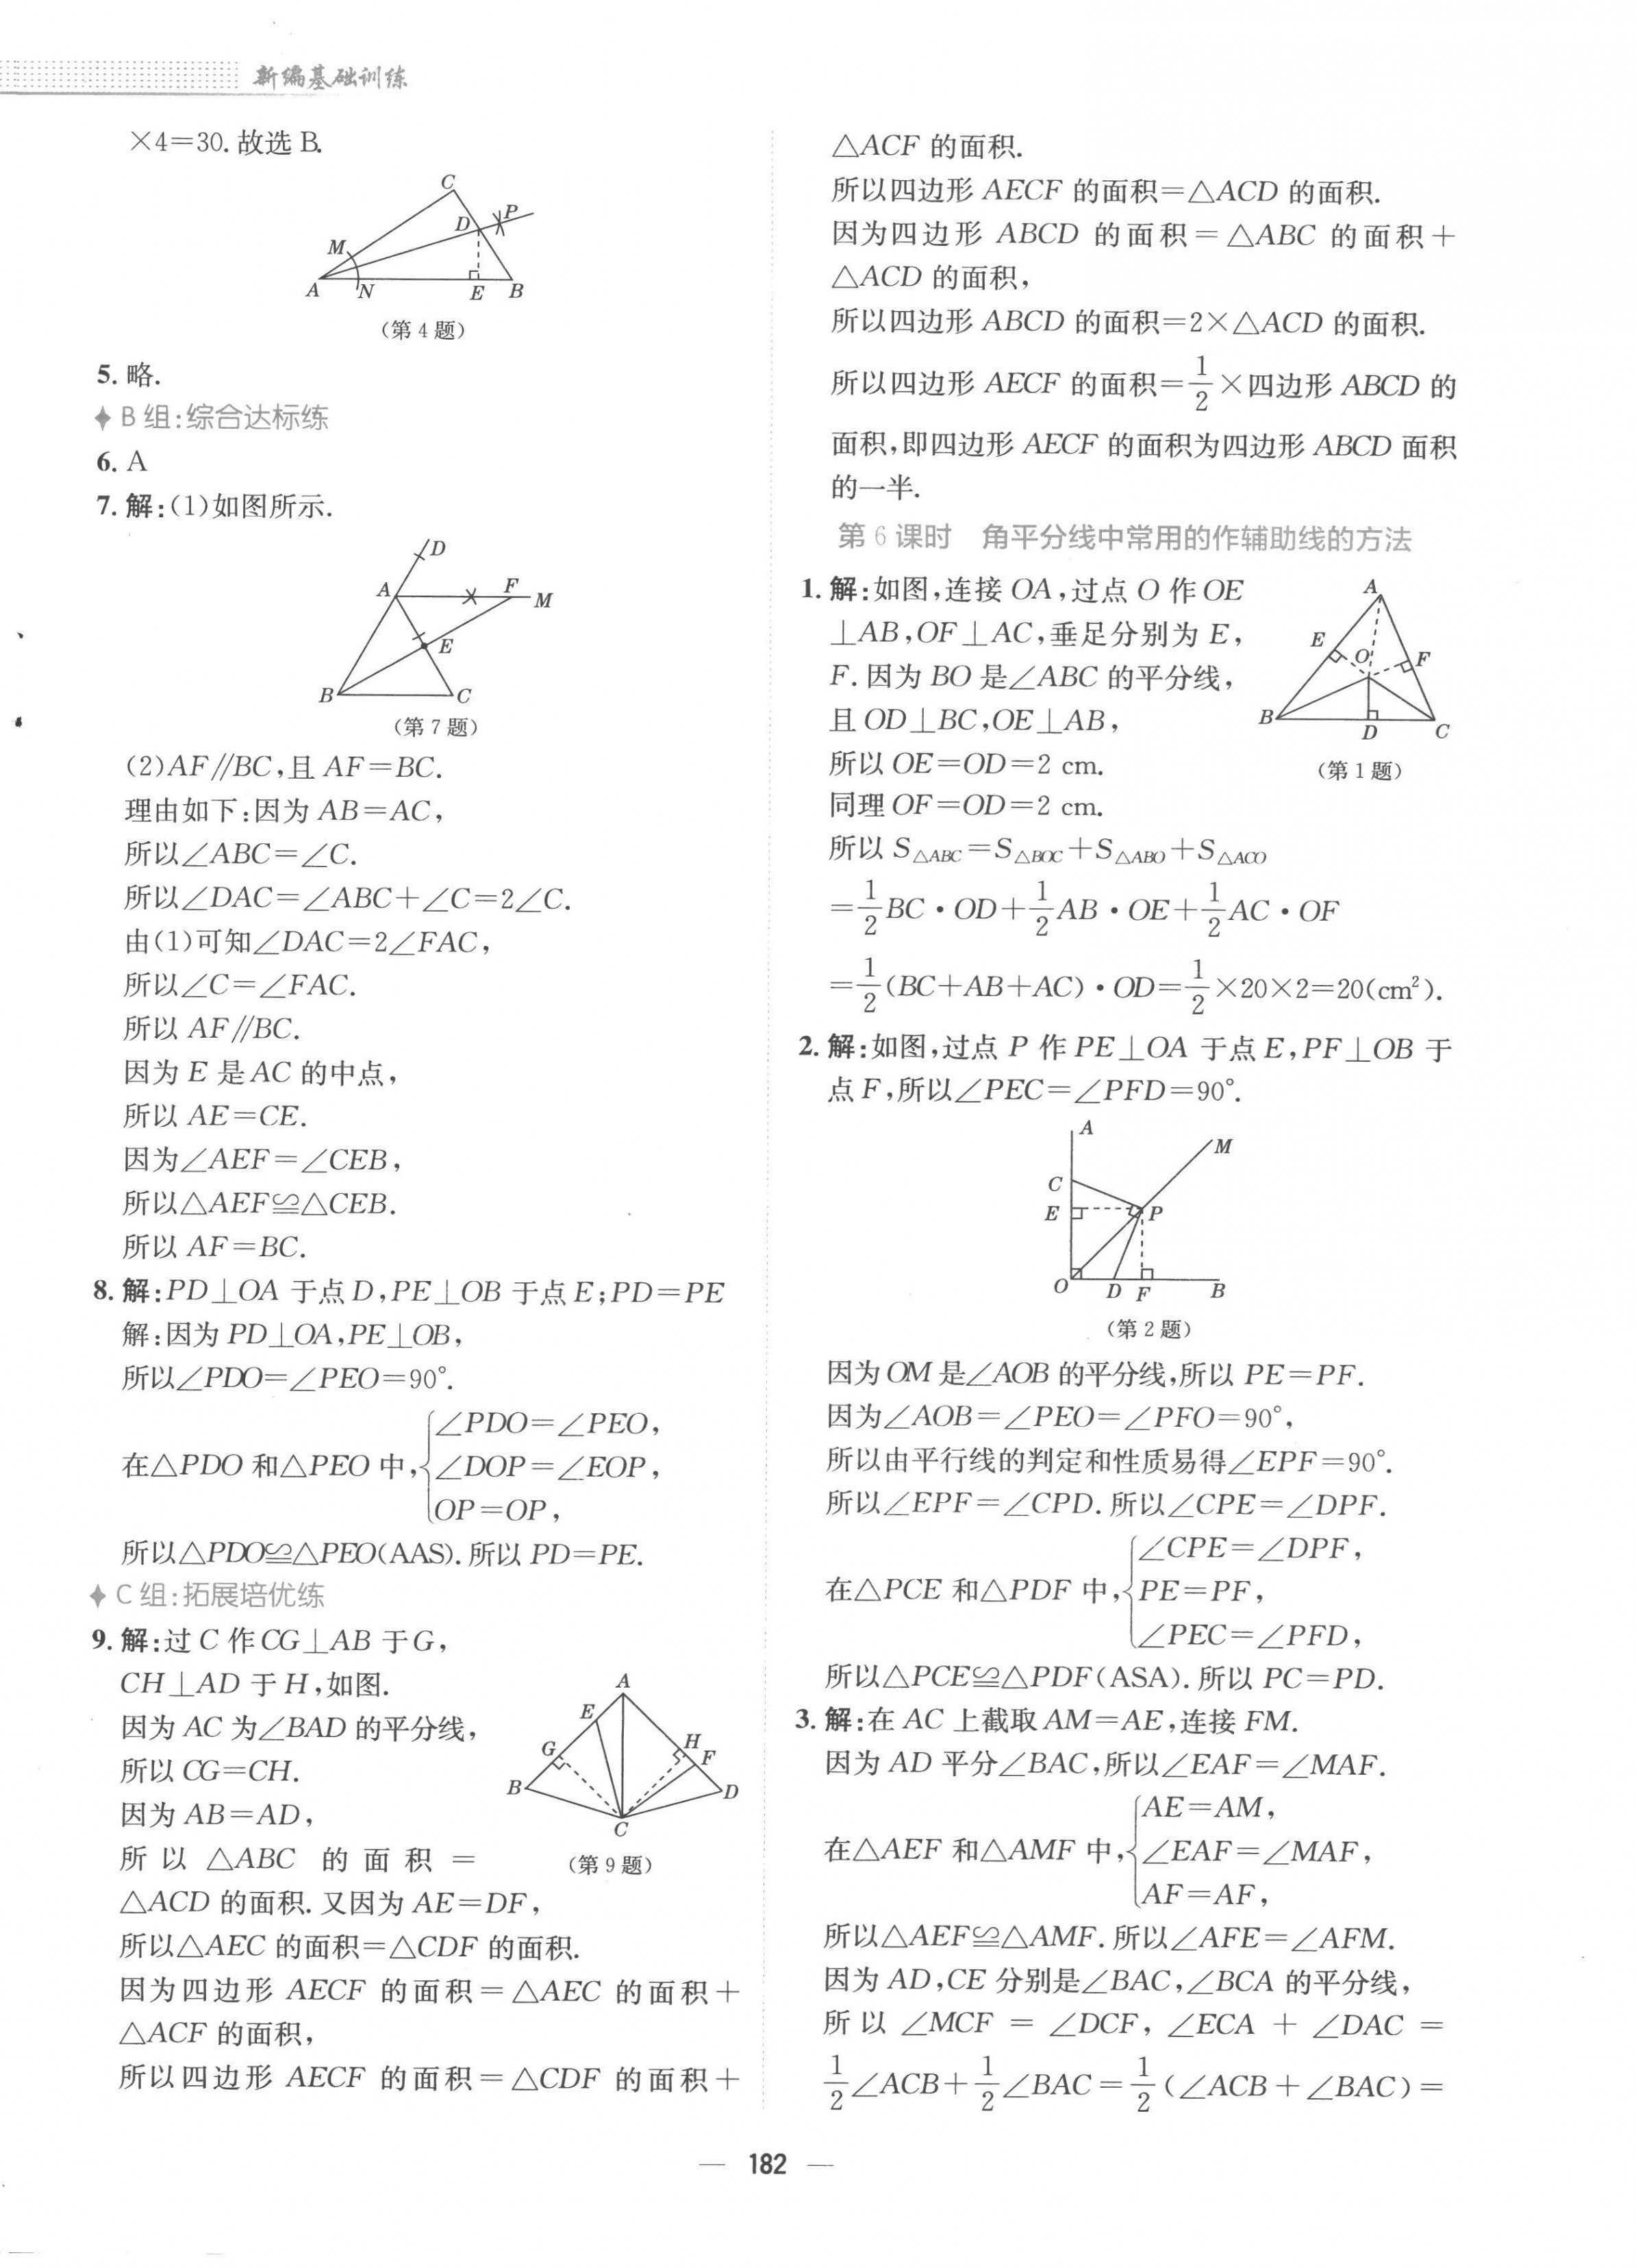 新编基础训练
×4=30.故选B.
C
D
P
M
A
N
E
B
(第4题)
5.略.
B组:综合达标练
6. A
7.解:(1)如图所示.
D
A
F
M
E
B
C
(第7题)
(2)AF∥BC,且AF=BC.
理由如下:因为AB=AC,
所以∠ABC=∠C.
所以∠DAC=∠ABC+∠C=2∠C.
由(1)可知∠DAC=2∠FAC,
所以∠C=∠FAC.
所以AF∥BC.
因为E是AC的中点,
所以AE=CE.
因为∠AEF=∠CEB,
所以△AEF≌△CEB.
所以AF=BC.
8.解:PD⊥OA于点D,PE⊥OB于点E;PD=PE
解:因为PD⊥OA,PE⊥OB,
所以∠PDO=∠PEO=90°.
∠PDO=∠PEO,
在△PDO和△PEO中,{∠DOP=∠EOP,
OP=OP,
所以△PDO≌△PEO(AAS).所以PD=PE.
C组:拓展培优练
9.解:过C作CG⊥AB于G,
CH⊥AD于H,如图.
因为AC为∠BAD的平分线,
所以CG=CH.
因为AB=AD,
所以△ABC的面积=
A
E
G
H
F
B
D
C
(第9题)
△ACD的面积.又因为AE=DF,
所以△AEC的面积=△CDF的面积.
因为四边形AECF的面积=△AEC的面积+
△ACF的面积,
所以四边形AECF的面积=△CDF的面积+
△ACF的面积.
所以四边形AECF的面积=△ACD的面积.
因为四边形ABCD的面积=△ABC的面积+
△ACD的面积,
所以四边形ABCD的面积=2×△ACD的面积.
所以四边形AECF的面积=1/2×四边形ABCD的
面积,即四边形AECF的面积为四边形ABCD面积
的一半.
第6课时 角平分线中常用的作辅助线的方法
1.解:如图,连接OA,过点O作OE
⊥AB,OF⊥AC,垂足分别为E,
F.因为BO是∠ABC的平分线,
且OD⊥BC,OE⊥AB,
所以OE=OD=2 cm.
同理OF=OD=2 cm.
A
E
O
F
B
D
C
(第1题)
所以S△ABC=S△BOC+S△ABO+S△ACO
=1/2BC·OD+1/2AB·OE+1/2AC·OF
=1/2(BC+AB+AC)·OD=1/2×20×2=20(cm²).
2.解:如图,过点P作PE⊥OA于点E,PF⊥OB于
点F,所以∠PEC=∠PFD=90°.
A
M
C
E
P
O
D
F
B
(第2题)
因为OM是∠AOB的平分线,所以PE=PF.
因为∠AOB=∠PEO=∠PFO=90°,
所以由平行线的判定和性质易得∠EPF=90°.
所以∠EPF=∠CPD.所以∠CPE=∠DPF.
∠CPE=∠DPF,
在△PCE和△PDF中,{PE=PF,
∠PEC=∠PFD,
所以△PCE≌△PDF(ASA).所以PC=PD.
3.解:在AC上截取AM=AE,连接FM.
因为AD平分∠BAC,所以∠EAF=∠MAF.
AE=AM,
在△AEF和△AMF中,{∠EAF=∠MAF,
AF=AF,
所以△AEF≌△AMF.所以∠AFE=∠AFM.
因为AD,CE分别是∠BAC,∠BCA的平分线,
所以∠MCF=∠DCF,∠ECA+∠DAC=
1/2∠ACB+1/2∠BAC=1/2(∠ACB+∠BAC)=
— 182 —